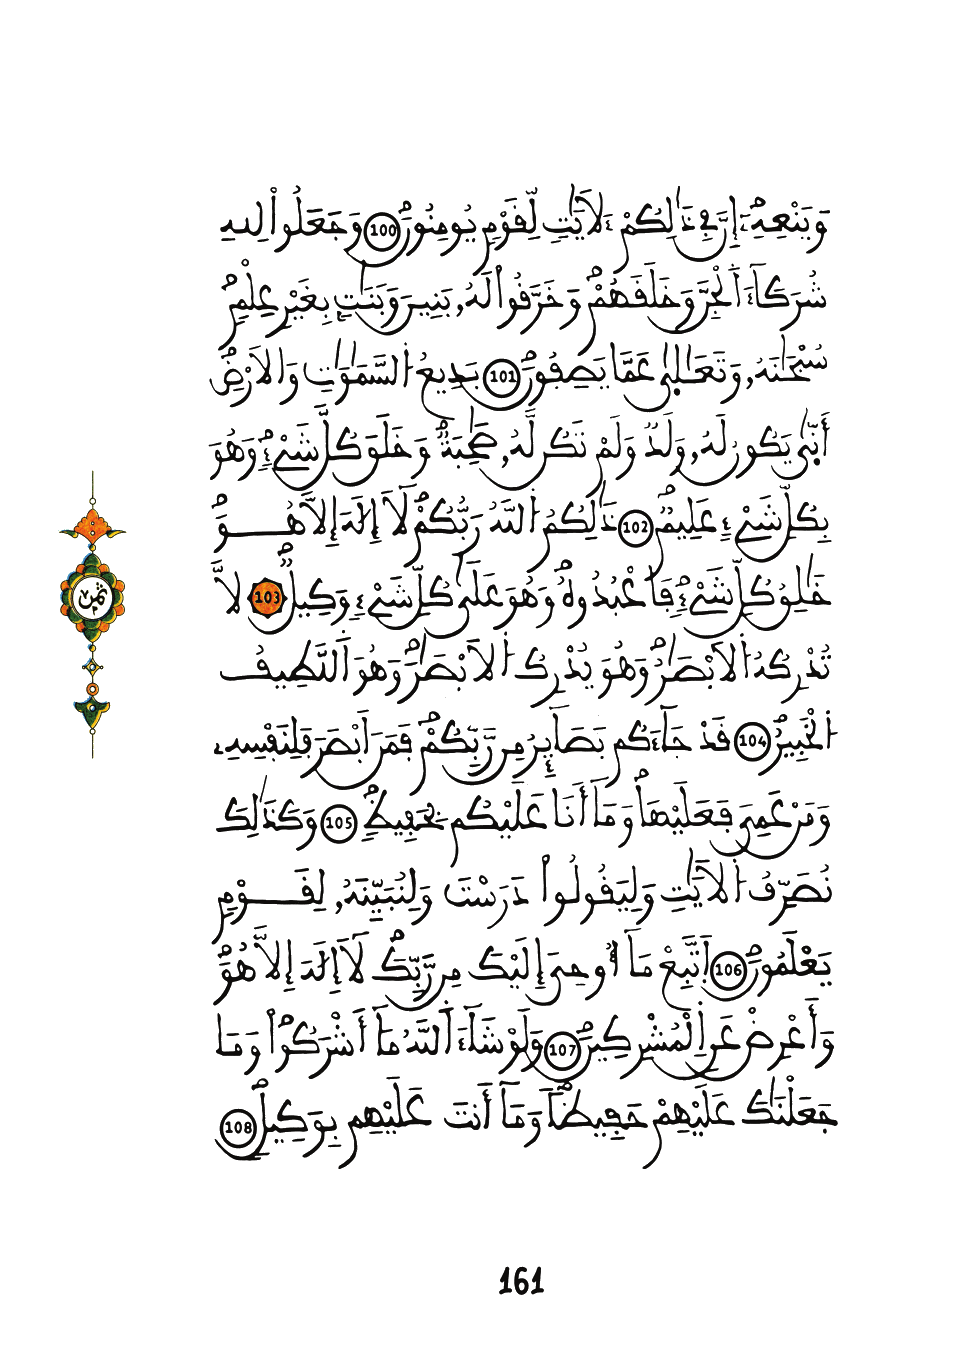 وَيَنْعِهِۦٓ إِنَّ فِے ذَٰلِكُمْ ءَلَايَٰتٖ لِّقَوْمٖ يُومِنُونَۖ 100 وَجَعَلُواْ لِلهِ
شُرَكَآءَ اَ۬لْجِنَّ وَخَلَقَهُمْۖ وَخَرَّقُواْ لَهُۥ بَنِينَ وَبَنَٰتِۢ بِغَيْرِ عِلْمٖۖ
سُبْحَٰنَهُۥ وَتَعَٰلَىٰ عَمَّا يَصِفُونَۖ 101 بَدِيعُ اُ۬لسَّمَٰوَٰتِ وَالَارْضِۖ
أَنَّىٰ يَكُونُ لَهُۥ وَلَدٞ وَلَمْ تَكُن لَّهُۥ صَٰحِبَةٞۖ وَخَلَقَ كُلَّ شَےْءٖۖ وَهُوَ
بِكُلِّ شَےْءٍ عَلِيمٞۖ 102 ذَٰلِكُمُ اُ۬للَّهُ رَبُّكُمْۖ لَآ إِلَٰهَ إِلَّا هُوَۖ
خَٰلِقُ كُلِّ شَےْءٖۖ فَاعْبُدُوهُۖ وَهُوَ عَلَىٰ كُلِّ شَےْءٖ وَكِيلٞۖ 103 لَّا
تُدْرِكُهُ اُ۬لَابْصَٰرُۖ وَهُوَ يُدْرِكُ اُ۬لَابْصَٰرَۖ وَهُوَ اَ۬للَّطِيفُ
اُ۬لْخَبِيرُۖ 104 قَدْ جَآءَكُم بَصَآئِرُ مِن رَّبِّكُمْۖ فَمَنَ اَبْصَرَ فَلِنَفْسِهِۦ
وَمَنْ عَمِيَ فَعَلَيْهَاۖ وَمَآ أَنَا عَلَيْكُم بِحَفِيظٖۖ 105 وَكَذَٰلِكَ
نُصَرِّفُ اُ۬لَايَٰتِ وَلِيَقُولُواْ دَرَسْتَ وَلِنُبَيِّنَهُۥ لِقَوْمٖ
يَعْلَمُونَۖ 106 اَ۪تَّبِعْ مَآ أُوحِيَ إِلَيْكَ مِن رَّبِّكَۖ لَآ إِلَٰهَ إِلَّا هُوَۖ
وَأَعْرِضْ عَنِ اِ۬لْمُشْرِكِينَۖ 107 وَلَوْ شَآءَ اَ۬للَّهُ مَآ أَشْرَكُواْۖ وَمَا
جَعَلْنَٰكَ عَلَيْهِمْ حَفِيظاٗۖ وَمَآ أَنتَ عَلَيْهِم بِوَكِيلٖۖ 108
ثمن
161